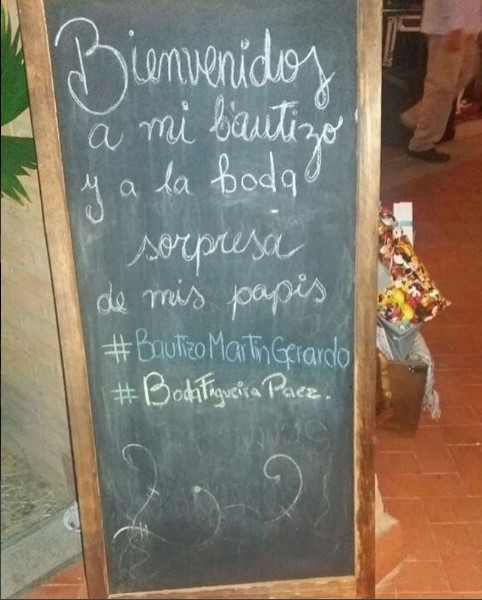 Bienvenidos
a mi bautizo
y a la boda
sorpresa
de mis papis
#BautizoMartinGerardo
#BodaFigueira Paez.